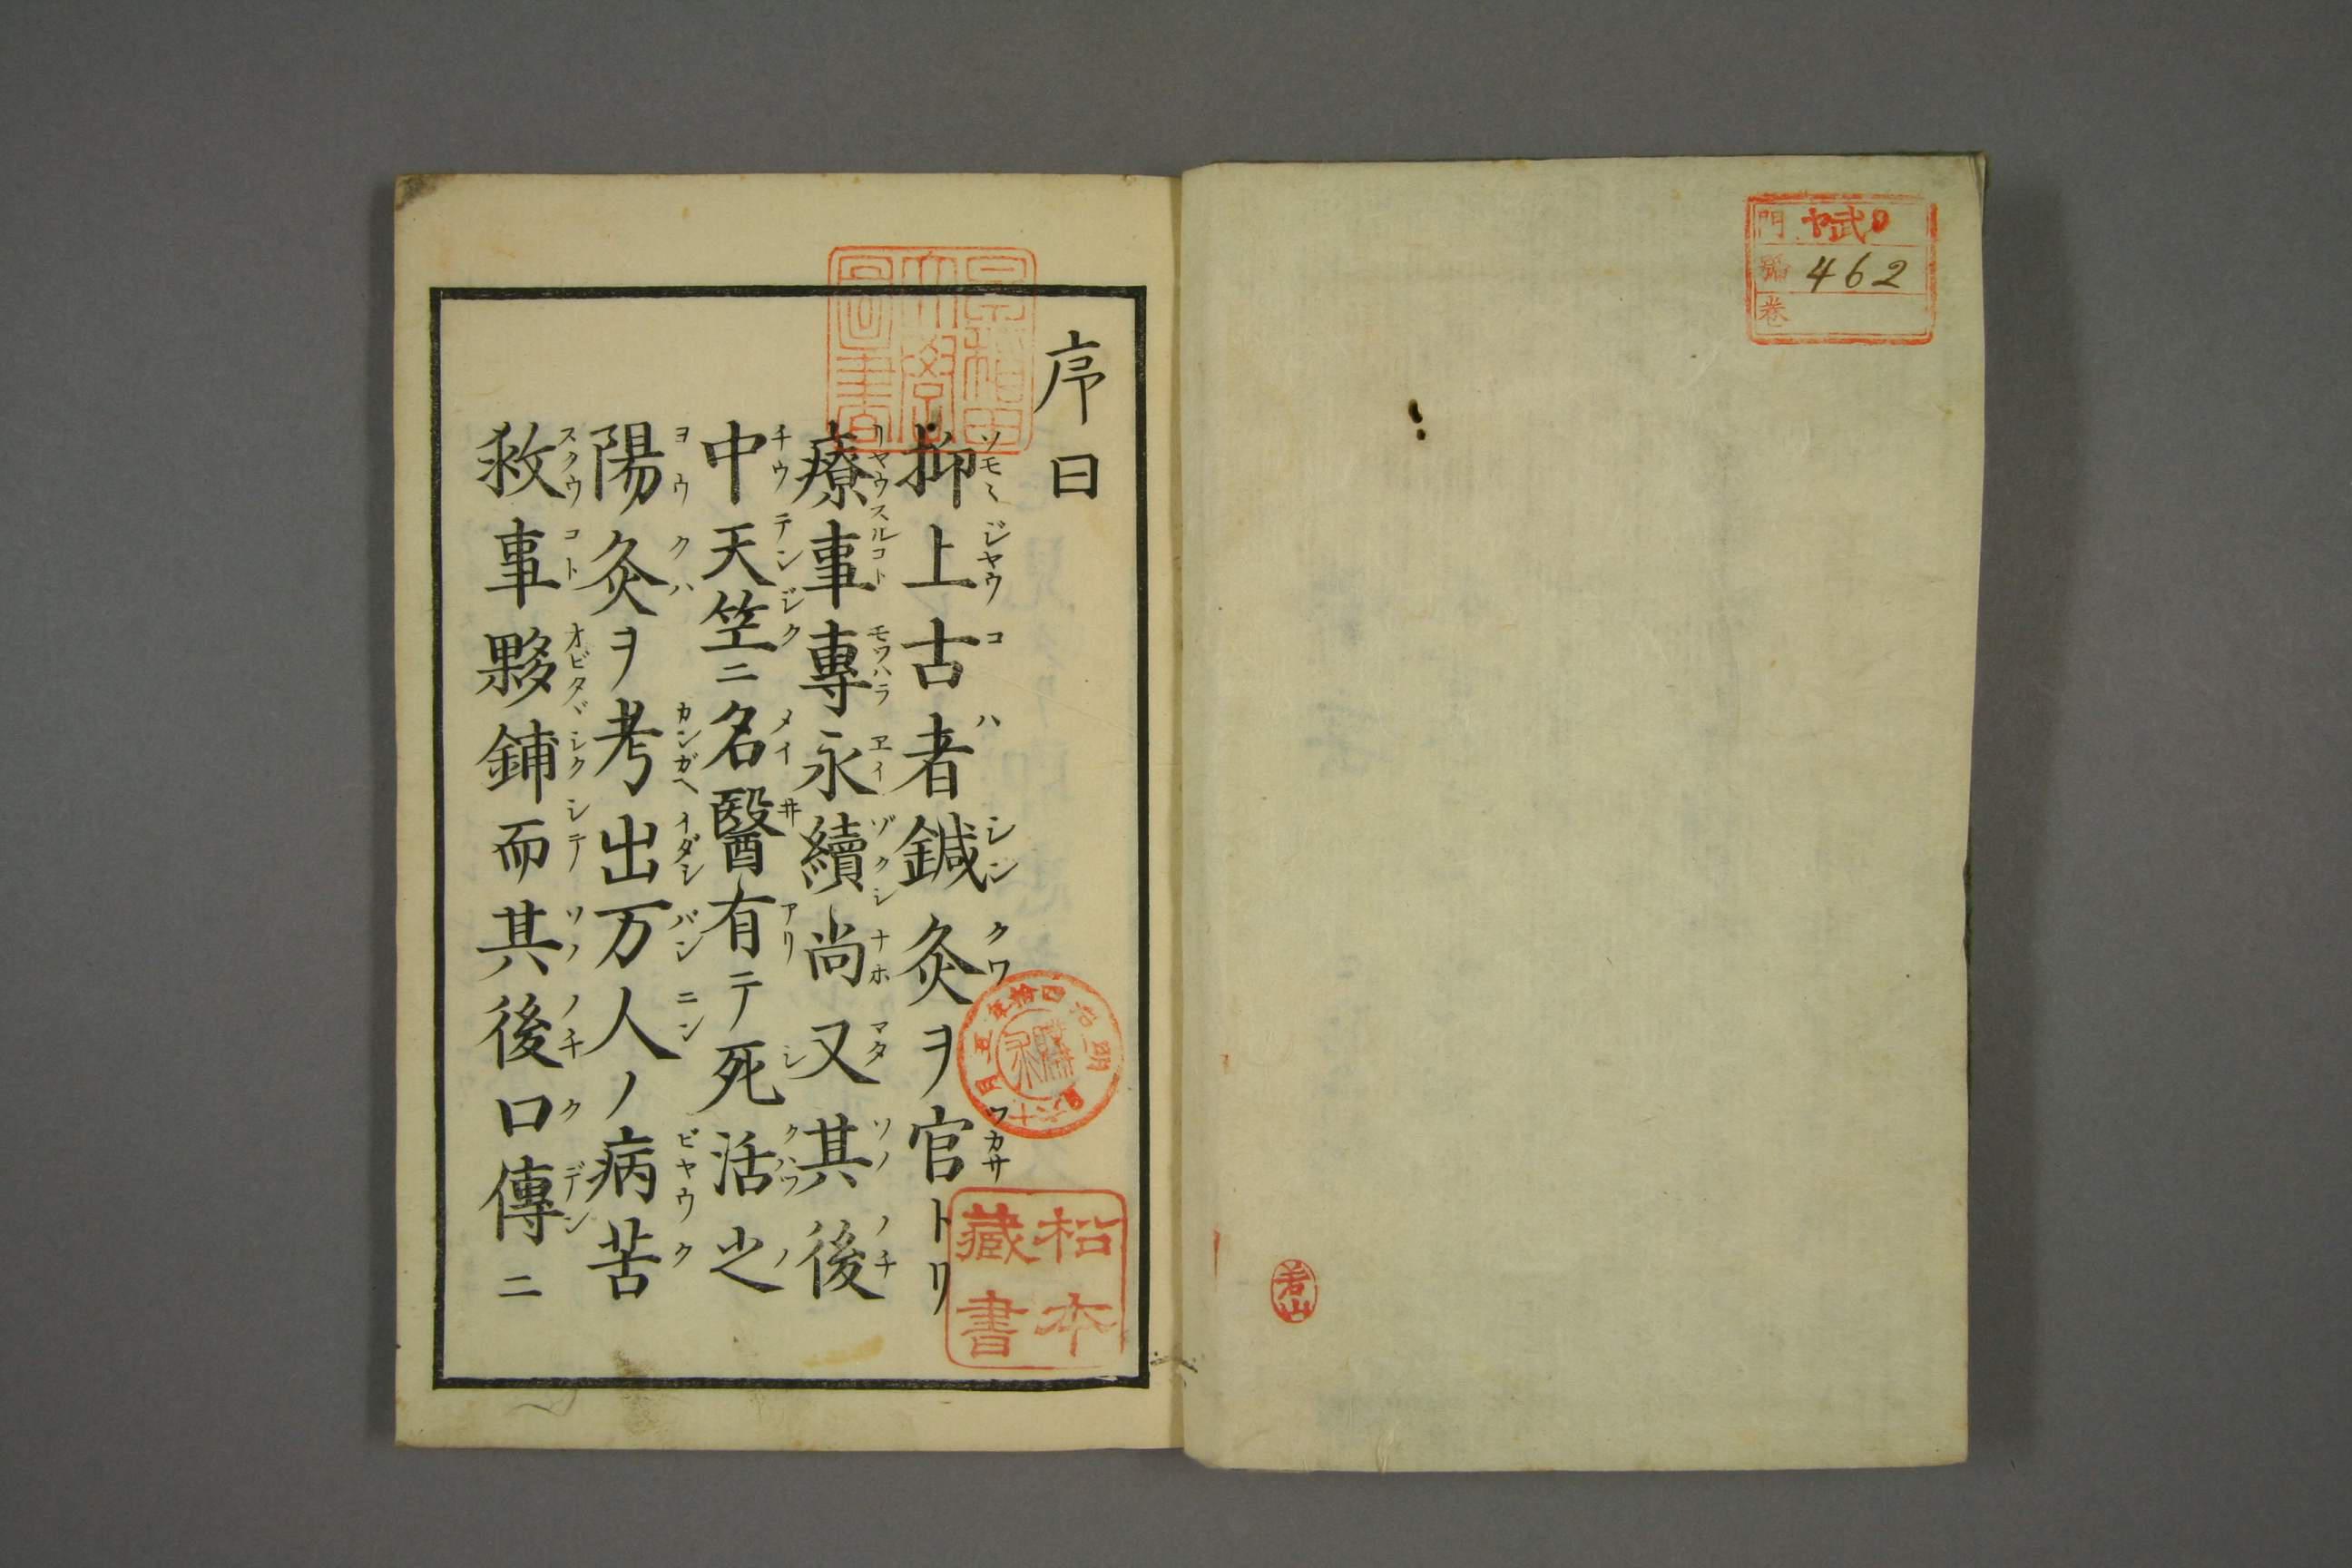 門 ヤ武
號 462
卷
若山
序曰
抑上古者鍼灸ヲ官トリ
ソモ〻 ジヤウ コ ハ シン クワ ツカサ
療事專永續尚又其後
リヤウスルコト モツハラ ヱイ ゾクシ ナホ マタ ソノ ノチ
中天笠ニ名醫有テ死活之
チウ テンジク メイ井 アリ シ クハツ ノ
陽灸ヲ考出万人ノ病苦
ヨウ クハ カンガヘ イダシ バン ニン ビヤウ ク
救事夥鋪而其後口傳ニ
スクウ コト オビタヾシク シテ ソノ ノチ ク デン
早稲田
大學
圖書
明治四拾年五月
松本
藏書